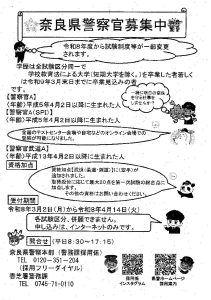 奈良県警察官募集中
令和8年度から試験制度等が一部変更
されます。
学歴は全試験区分同一で
学校教育法による大学(短期大学を除く。)を卒業した者若しく
は令和9年3月末日までに卒業見込みの者
です。
【警察官A】
(年齢)平成5年4月2日以降に生まれた人
【警察官A(SPI)】
(年齢)平成5年4月2日以降に生まれた人
全国のテストセンター会場や自宅などのオンライン会場での
受験が可能になりました。
【警察官武道A】
(年齢)平成13年4月2日以降に生まれた人
資格加点
資格加点に武道(柔道・剣道)に(空手)が
追加されました。
取得段位に応じて最大20点を第一次試験の総合点に
加点します。
その他の資格はお問い合わせください。
受付期間
令和8年3月2日(月)から令和8年4月14日(火)
各試験区分、併願できません。
申し込みは、インターネットのみです。
【問合せ】(平日8:30~17:15)
奈良県警察本部(警務課採用係)
TEL 0120-351-204
(採用フリーダイヤル)
香芝署警務課
TEL 0745-71-0110
採用係
インスタグラム
県警ホームページ
採用案内